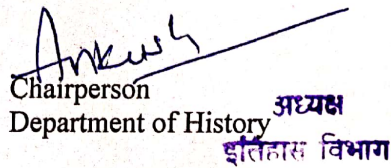 Ankush
Chairperson
Department of History
अध्यक्ष
इतिहास विभाग